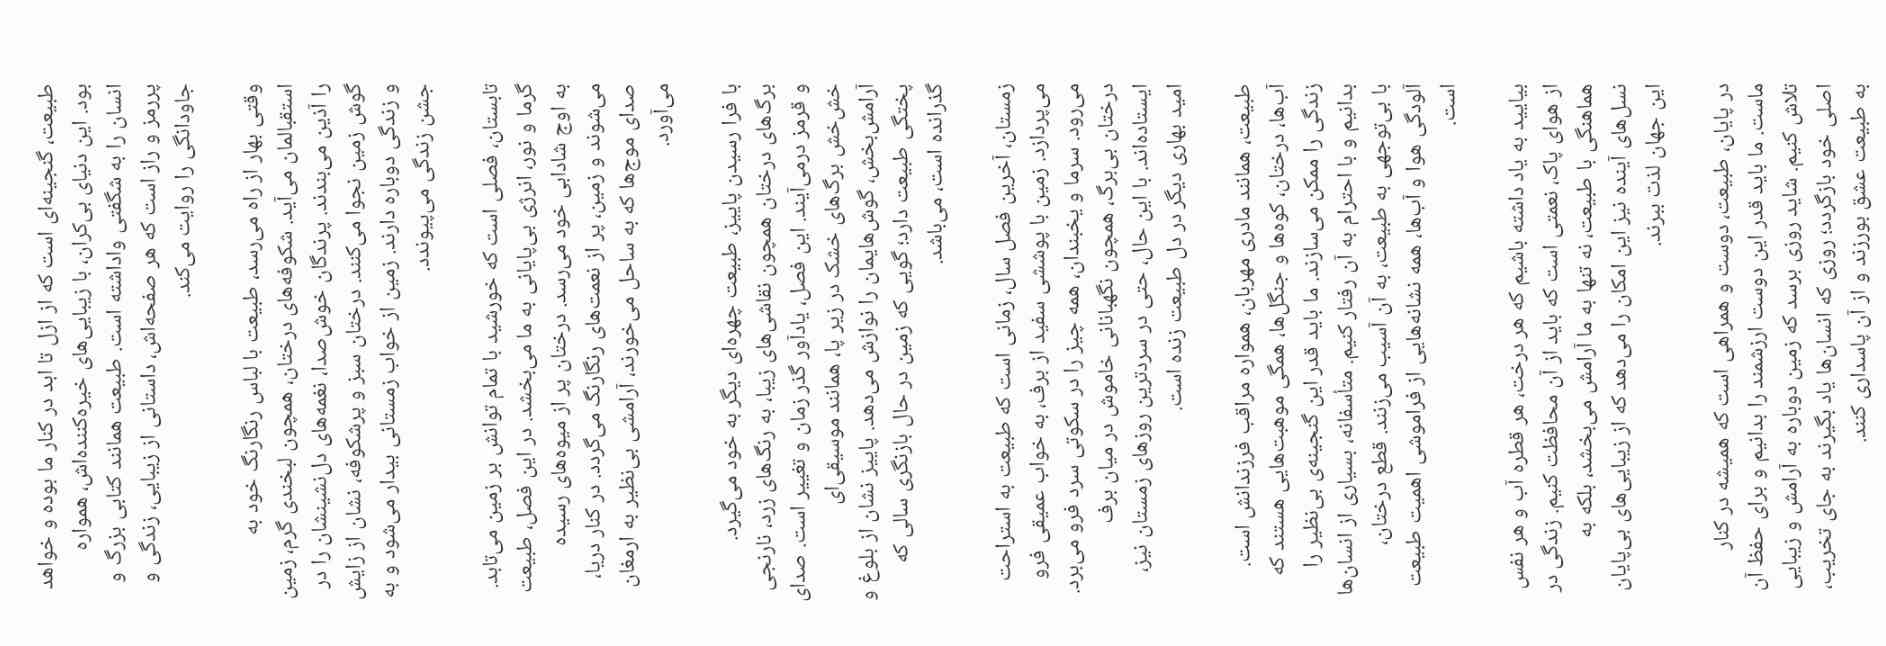 طبیعت، گنجینه‌ای است که از ازل تا ابد در کنار ما بوده و خواهد
بود. این دنیای بی‌کران، با زیبایی‌های خیره‌کننده‌اش، همواره
انسان را به شگفتی واداشته است. طبیعت همانند کتابی بزرگ و
پررمز و راز است که هر صفحه‌اش، داستانی از زیبایی، زندگی و
جاودانگی را روایت می‌کند.
وقتی بهار از راه می‌رسد، طبیعت با لباس رنگارنگ خود به
استقبالمان می‌آید. شکوفه‌های درختان، همچون لبخندی گرم، زمین
را آذین می‌بندند. پرندگان خوش‌صدا، نغمه‌های دل‌نشینشان را در
گوش زمین نجوا می‌کنند. درختان سبز و پرشکوفه، نشان از زایش
و زندگی دوباره دارند. زمین از خواب زمستانی بیدار می‌شود و به
جشن زندگی می‌پیوندد.
تابستان، فصلی است که خورشید با تمام توانش بر زمین می‌تابد.
گرما و نور، انرژی بی‌پایانی به ما می‌بخشد. در این فصل، طبیعت
به اوج شادابی خود می‌رسد. درختان پر از میوه‌های رسیده
می‌شوند و زمین، پر از نعمت‌های رنگارنگ می‌گردد. در کنار دریا،
صدای موج‌ها که به ساحل می‌خورند، آرامشی بی‌نظیر به ارمغان
می‌آورد.
با فرا رسیدن پاییز، طبیعت چهره‌ای دیگر به خود می‌گیرد.
برگ‌های درختان همچون نقاشی‌های زیبا، به رنگ‌های زرد، نارنجی
و قرمز درمی‌آیند. این فصل، یادآور گذر زمان و تغییر است. صدای
خش‌خش برگ‌های خشک در زیر پا، همانند موسیقی‌ای
آرامش‌بخش، گوش‌هایمان را نوازش می‌دهد. پاییز نشان از بلوغ و
پختگی طبیعت دارد؛ گویی که زمین در حال بازنگری سالی که
گذرانده است، می‌باشد.
زمستان، آخرین فصل سال، زمانی است که طبیعت به استراحت
می‌پردازد. زمین با پوششی سفید از برف، به خواب عمیقی فرو
می‌رود. سرما و یخبندان، همه چیز را در سکوتی سرد فرو می‌برد.
درختان بی‌برگ، همچون نگهبانانی خاموش در میان برف
ایستاده‌اند. با این حال، حتی در سردترین روزهای زمستان نیز،
امید بهاری دیگر در دل طبیعت زنده است.
طبیعت، همانند مادری مهربان، همواره مراقب فرزندانش است.
آب‌ها، درختان، کوه‌ها و جنگل‌ها، همگی موهبت‌هایی هستند که
زندگی را ممکن می‌سازند. ما باید قدر این گنجینه‌ی بی‌نظیر را
بدانیم و با احترام به آن رفتار کنیم. متأسفانه، بسیاری از انسان‌ها
با بی‌توجهی به طبیعت، به آن آسیب می‌زنند. قطع درختان،
آلودگی هوا و آب‌ها، همه نشانه‌هایی از فراموشی اهمیت طبیعت
است.
بیایید به یاد داشته باشیم که هر درخت، هر قطره آب و هر نفس
از هوای پاک، نعمتی است که باید از آن محافظت کنیم. زندگی در
هماهنگی با طبیعت، نه تنها به ما آرامش می‌بخشد، بلکه به
نسل‌های آینده نیز این امکان را می‌دهد که از زیبایی‌های بی‌پایان
این جهان لذت ببرند.
در پایان، طبیعت، دوست و همراهی است که همیشه در کنار
ماست. ما باید قدر این دوست ارزشمند را بدانیم و برای حفظ آن
تلاش کنیم. شاید روزی برسد که زمین دوباره به آرامش و زیبایی
اصلی خود بازگردد؛ روزی که انسان‌ها یاد بگیرند به جای تخریب،
به طبیعت عشق بورزند و از آن پاسداری کنند.